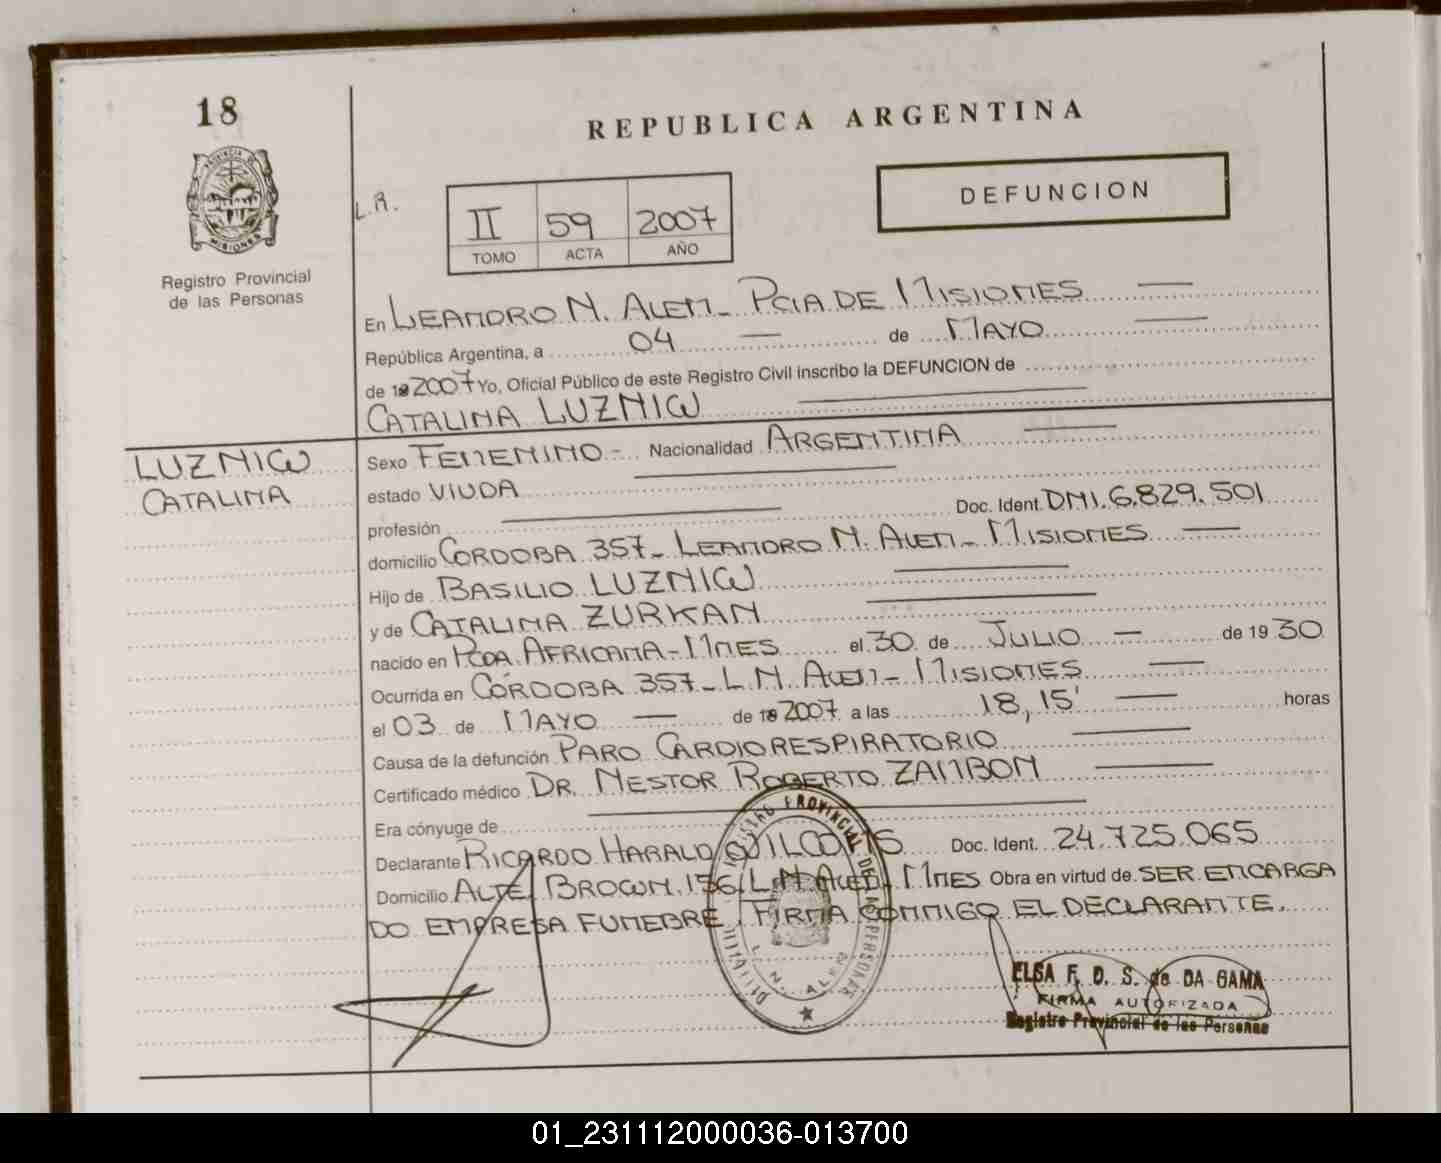 18
REPUBLICA ARGENTINA
PROVINCIA DE
MISIONES
Registro Provincial
de las Personas
L.A.
DEFUNCION
II 59 2007
TOMO ACTA AÑO
En LEANDRO N. ALEM_ PCIA DE MISIONES
República Argentina, a 04 de MAYO
de 2007 Yo, Oficial Público de este Registro Civil inscribo la DEFUNCION de
CATALINA LUZNIW
LUZNIW
CATALINA
Sexo FEMENINO - Nacionalidad ARGENTINA
estado VIUDA
profesión Doc. Ident. DNI. 6.829.501
domicilio CORDOBA 357_ LEANDRO N. ALEM_ MISIONES
Hijo de BASILIO LUZNIW
y de CATALINA ZURKAN
nacido en PCDA. AFRICANA-MNES el 30 de JULIO de 1930
Ocurrida en CÓRDOBA 357_ L.N. ALEM- MISIONES
el 03 de MAYO de 2007 a las 18,15' horas
Causa de la defunción PARO CARDIORESPIRATORIO
Certificado médico DR. NESTOR ROBERTO ZAMBON
Era cónyuge de
Declarante RICARDO HARALD Doc. Ident. 24.725.065
Domicilio ALTE. BROWN 156 L.N. ALEM. MNES Obra en virtud de SER ENCARGA
DO EMPRESA FUNEBRE. FIRMA CONMIGO EL DECLARANTE.
REGISTRO PROVINCIAL DE LAS PERSONAS
L. N. ALEM
ELSA F. D. S. de DA GAMA
FIRMA AUTORIZADA
Registro Provincial de las Personas
01_231112000036-013700